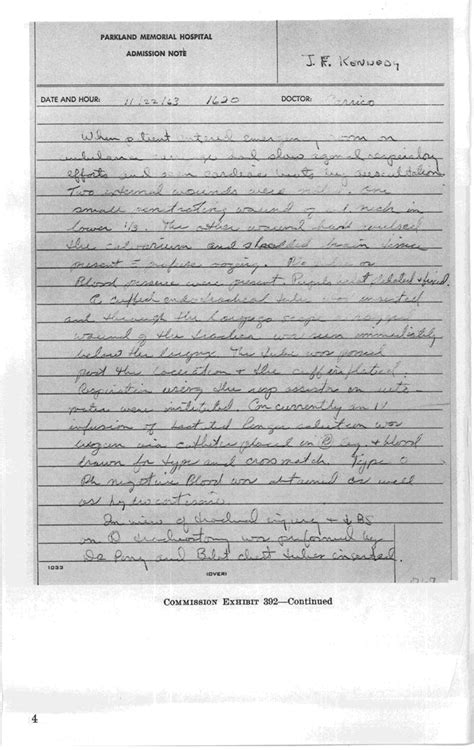 PARKLAND MEMORIAL HOSPITAL
ADMISSION NOTE
J. F. Kennedy
DATE AND HOUR: 11/22/63 1620 DOCTOR: Carrico
When patient entered emergency room on
ambulance carriage had slow agonal respiratory
efforts and scant cardiac beats by auscultation
Two external wounds were noted. One
small penetrating wound of neck in
lower 1/3. The other wound had
the calvarium and shredded brain tissue
present profuse oozing. No pulse or
Blood pressure were present. Pupils dilated & fixed.
A cuffed endotracheal tube was inserted
and through the laryngoscope a ragged
wound of the trachea was seen immediately
below the larynx. The tube was passed
past the laceration & the cuff inflated.
Respiration using the resp assistor on auto-
matic were instituted. Concurrently an IV
infusion of lactated Ringer solution was
begun via catheter placed in leg & blood
drawn for type and crossmatch. Type O
Rh negative Blood was obtained as well
as hydrocortisone.
In view of tracheal injury & ↓ BS
on tracheostomy was performed by
Dr Perry and Bilat chest tubes inserted.
1033
(OVER)
COMMISSION EXHIBIT 392—Continued
4